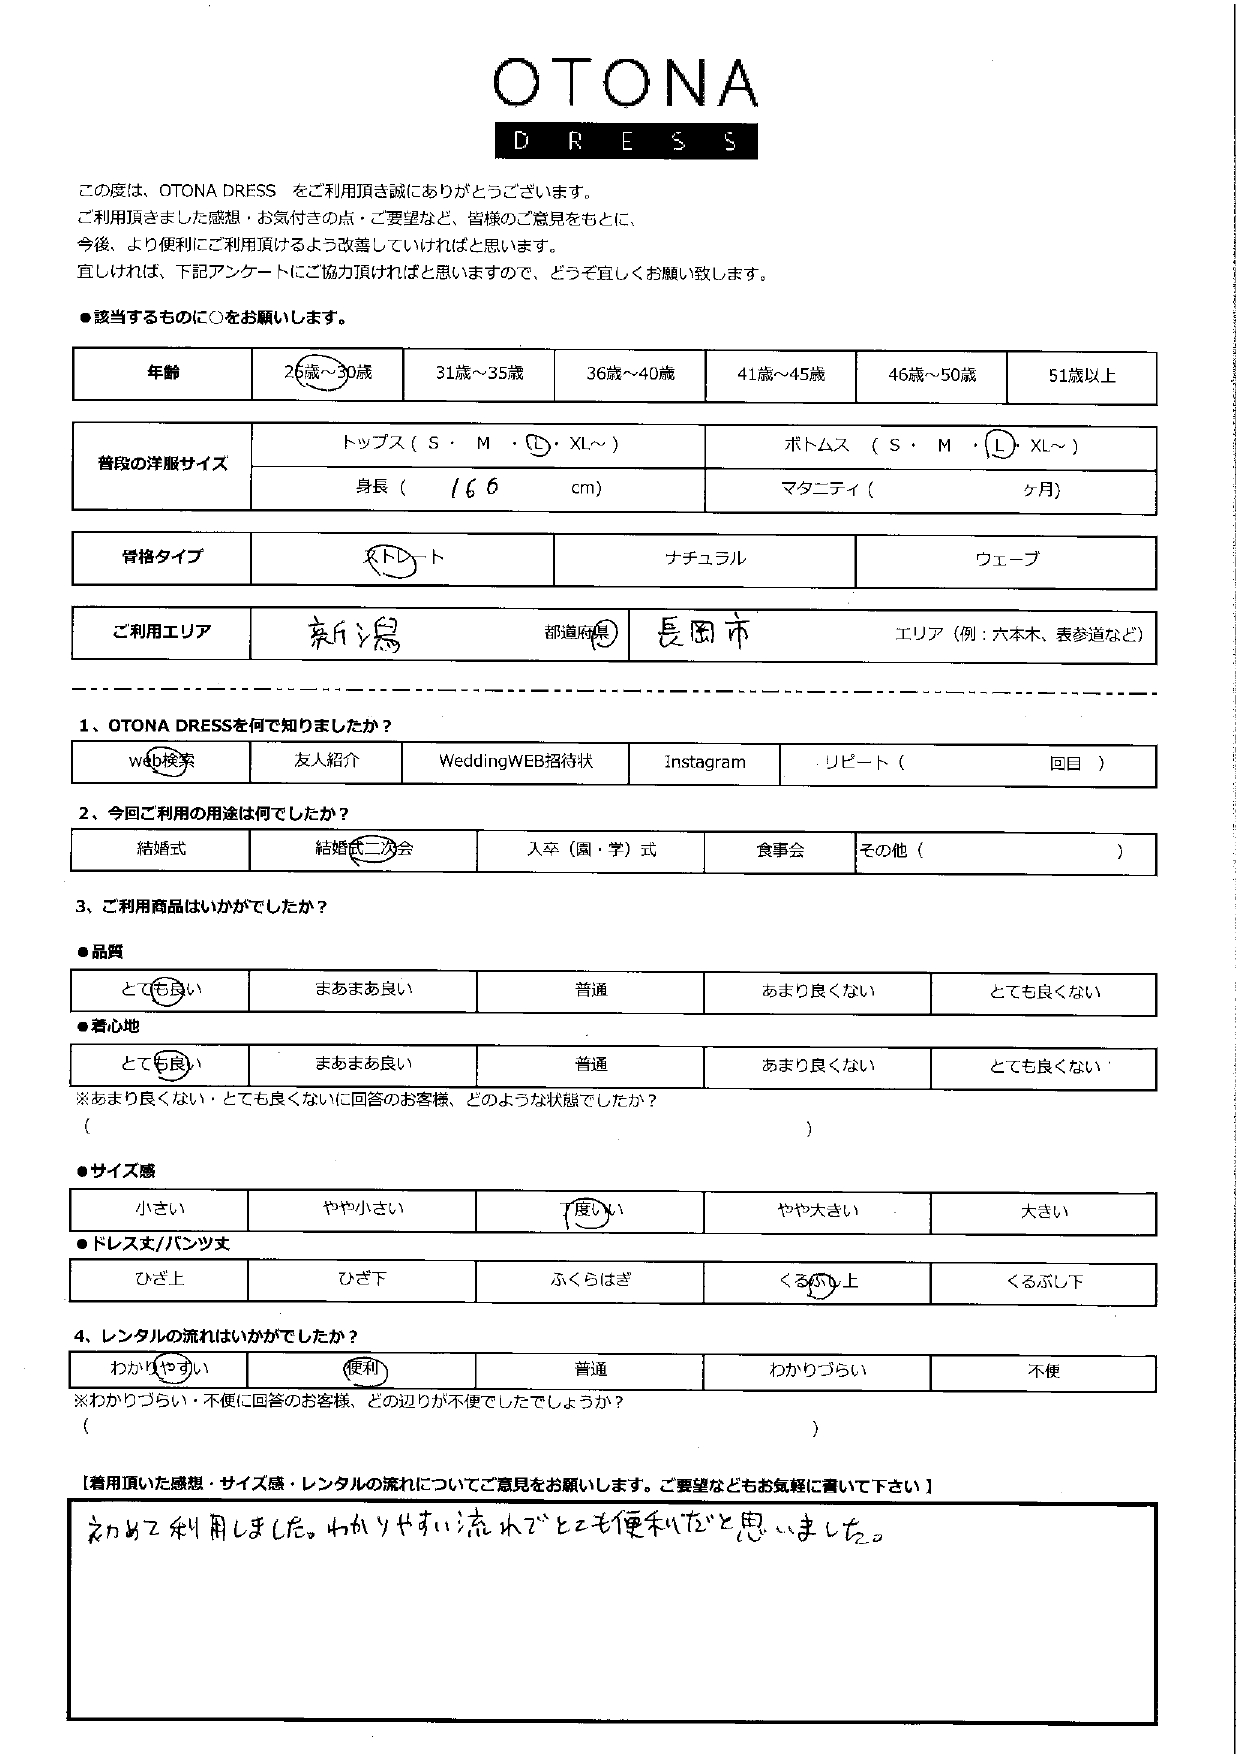 OTONA
DRESS
この度は、OTONA DRESS　をご利用頂き誠にありがとうございます。
ご利用頂きました感想・お気付きの点・ご要望など、皆様のご意見をもとに、
今後、より便利にご利用頂けるよう改善していければと思います。
宜しければ、下記アンケートにご協力頂ければと思いますので、どうぞ宜しくお願い致します。
●該当するものに○をお願いします。
年齢 26歳～30歳 31歳～35歳 36歳～40歳 41歳～45歳 46歳～50歳 51歳以上
普段の洋服サイズ トップス ( S ・ M ・ L ・ XL～ ) ボトムス ( S ・ M ・ L ・ XL～ )
身長 ( 166 cm) マタニティ ( ヶ月)
骨格タイプ ストレート ナチュラル ウェーブ
ご利用エリア 新潟 都道府県 長岡市 エリア（例：六本木、表参道など）
1、OTONA DRESSを何で知りましたか？
web検索 友人紹介 WeddingWEB招待状 Instagram リピート（ 回目 ）
2、今回ご利用の用途は何でしたか？
結婚式 結婚式二次会 入卒（園・学）式 食事会 その他（ ）
3、ご利用商品はいかがでしたか？
●品質
とても良い まあまあ良い 普通 あまり良くない とても良くない
●着心地
とても良い まあまあ良い 普通 あまり良くない とても良くない
※あまり良くない・とても良くないに回答のお客様、どのような状態でしたか？
（ ）
●サイズ感
小さい やや小さい 丁度いい やや大きい 大きい
●ドレス丈/パンツ丈
ひざ上 ひざ下 ふくらはぎ くるぶし上 くるぶし下
4、レンタルの流れはいかがでしたか？
わかりやすい 便利 普通 わかりづらい 不便
※わかりづらい・不便に回答のお客様、どの辺りが不便でしたでしょうか？
（ ）
【着用頂いた感想・サイズ感・レンタルの流れについてご意見をお願いします。ご要望などもお気軽に書いて下さい】
初めて利用しました。わかりやすい流れでとても便利だと思いました。